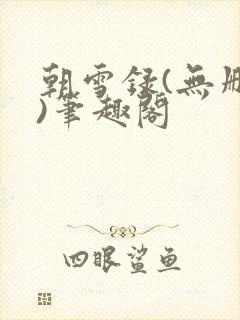 朝雪录(無刪
)筆趣閣
四眼鲨鱼